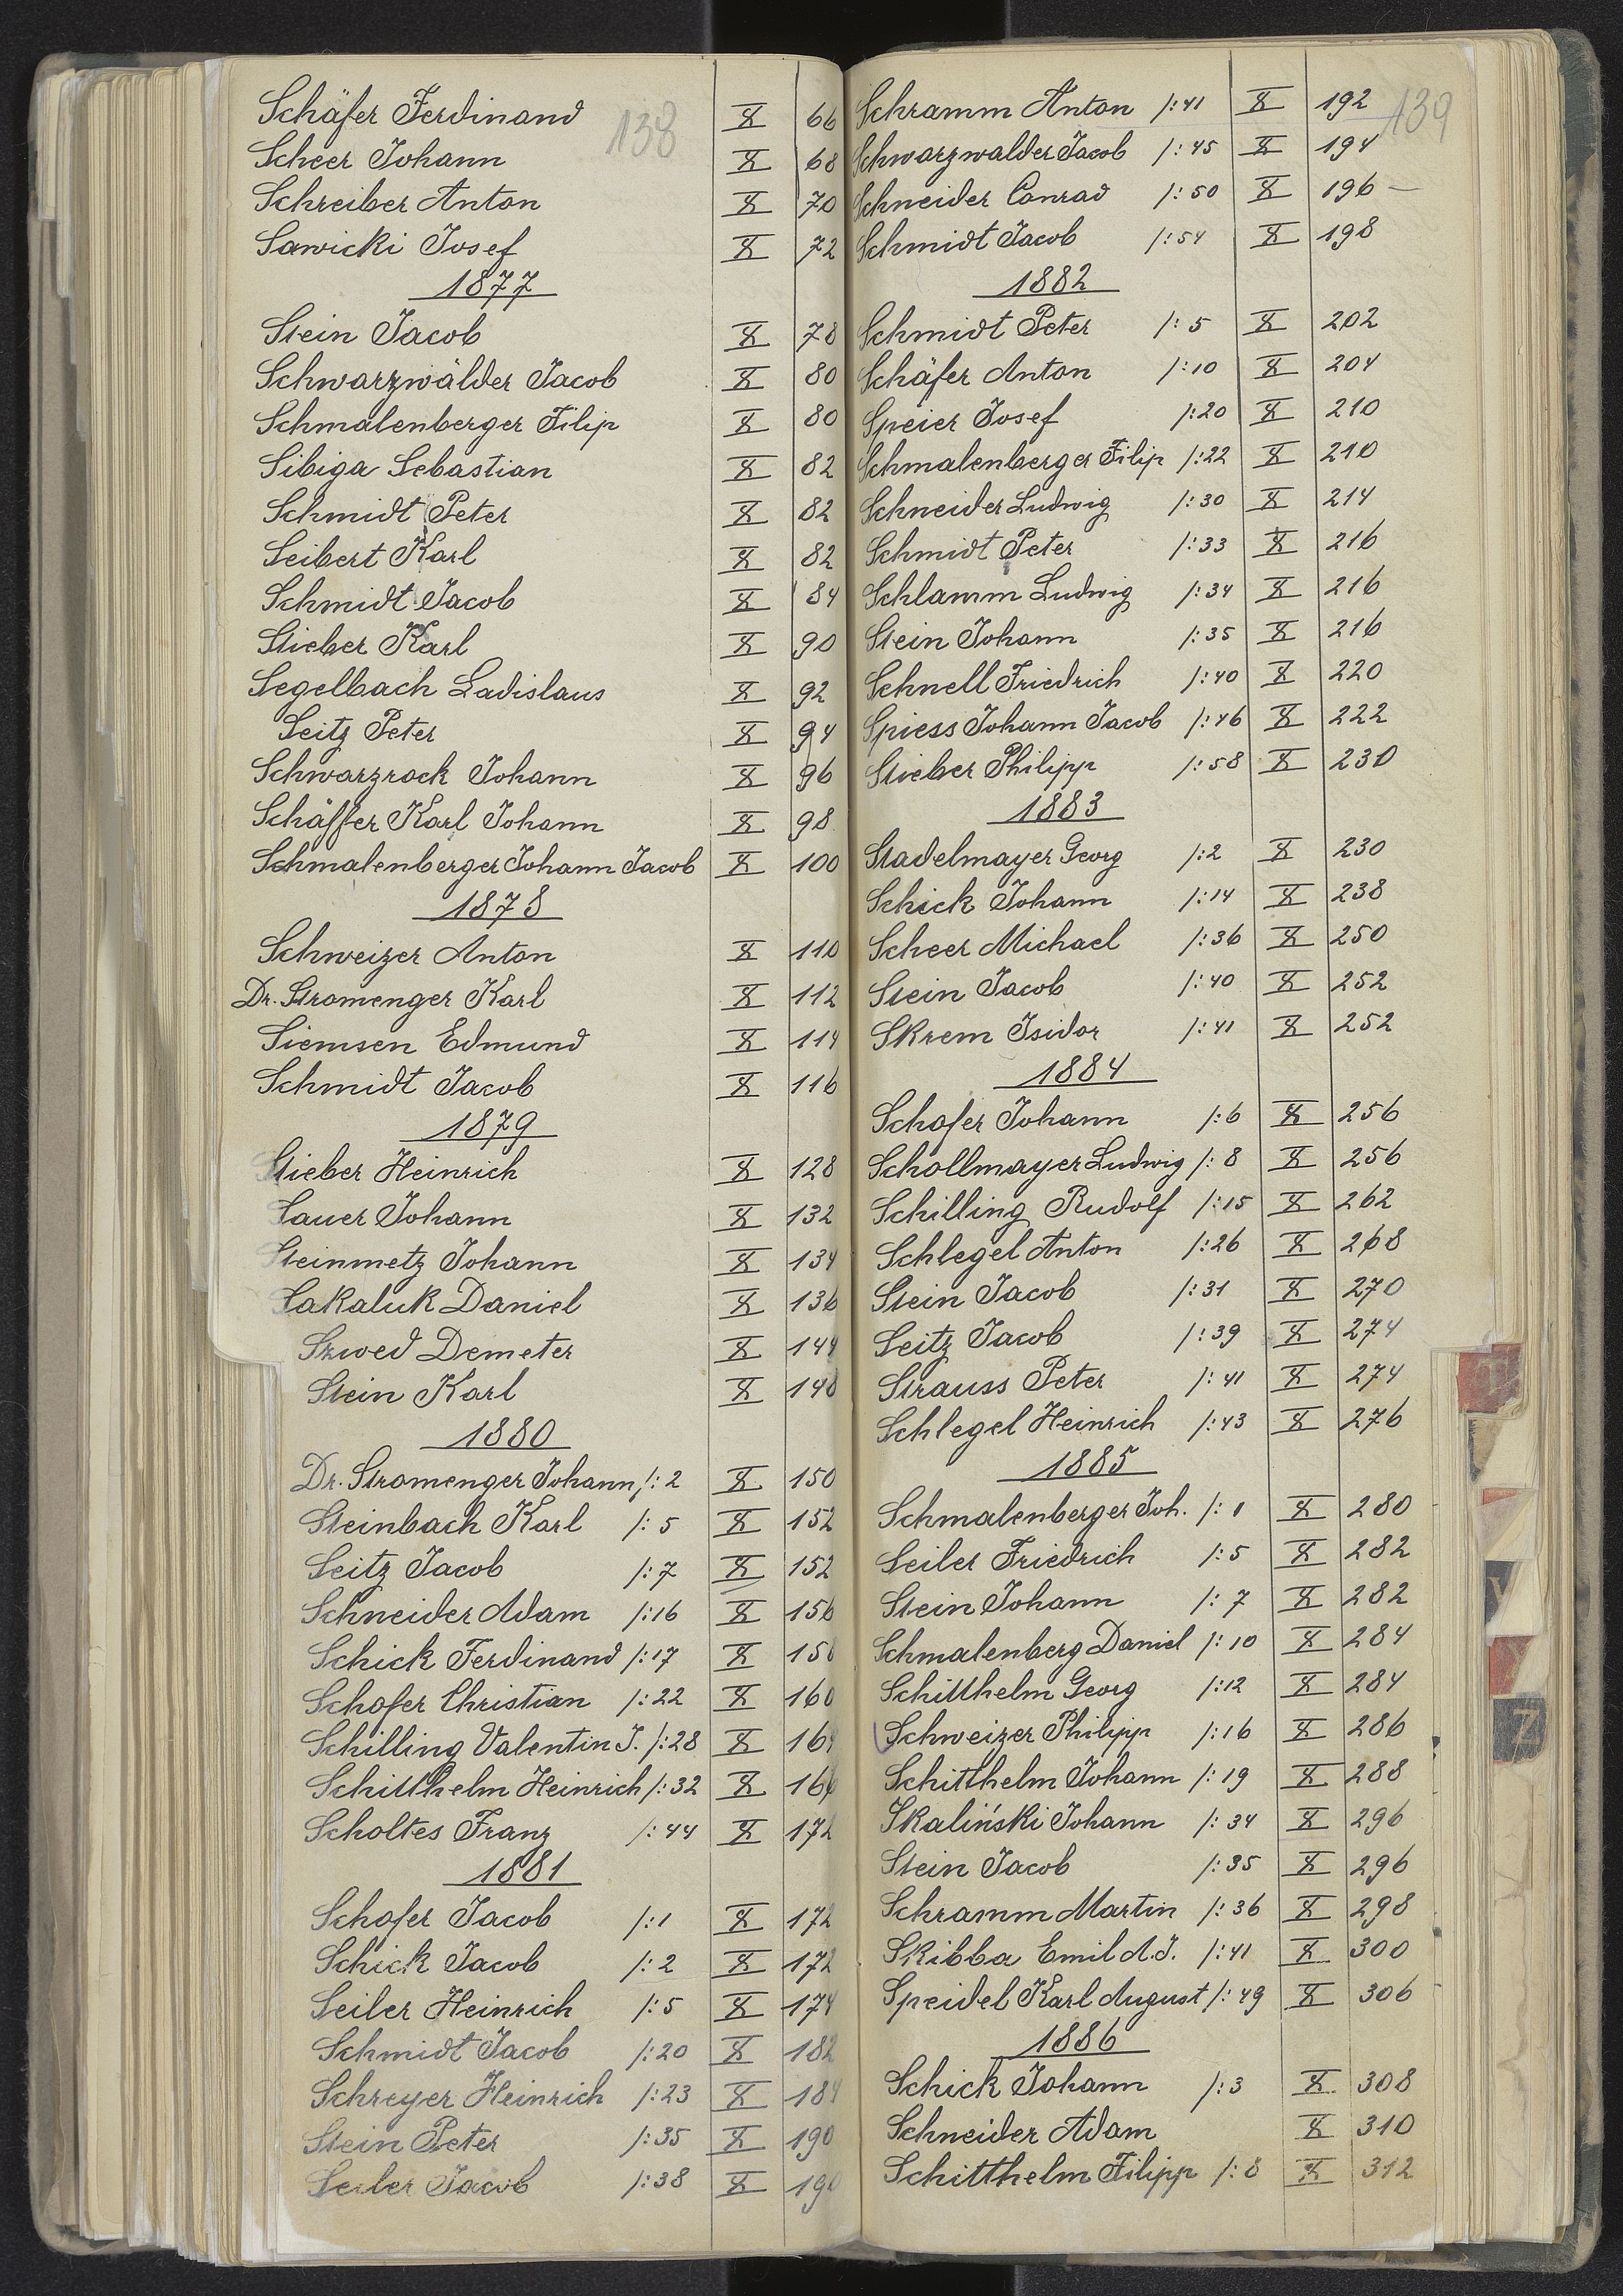 138
Schäfer Ferdinand X 66
Scheer Johann X 68
Schreiber Anton X 70
Sawicki Josef X 72
1877
Stein Jacob X 78
Schwarzwälder Jacob X 80
Schmalenberger Filip X 80
Sibiga Sebastian X 82
Schmidt Peter X 82
Seibert Karl X 82
Schmidt Jacob X 84
Stieber Karl X 90
Segelbach Ladislaus X 92
Seitz Peter X 94
Schwarzrock Johann X 96
Schäffer Karl Johann X 98
Schmalenberger Johann Jacob X 100
1878
Schweizer Anton X 110
Dr. Stromenger Karl X 112
Siemsen Edmund X 114
Schmidt Jacob X 116
1879
Stieber Heinrich X 128
Sauer Johann X 132
Steinmetz Johann X 134
Sakaluk Daniel X 136
Szwed Demeter X 144
Stein Karl X 148
1880
Dr. Stromenger Johann /: 2 X 150
Steinbach Karl /: 5 X 152
Seitz Jacob /: 7 X 152
Schneider Adam /: 16 X 156
Schick Ferdinand /: 17 X
Schofer Christian /: 22 X 160
Schilling Valentin J. /: 28 X
Schitthelm Heinrich /: 32 X
Scholtes Franz /: 44 X 172
1881
Schofer Jacob /: 1 X 172
Schick Jacob /: 2 X 172
Seiler Heinrich /: 5 X 174
Schmidt Jacob /: 20 X 182
Schreyer Heinrich /: 23 X 184
Stein Peter /: 35 X 190
Seiler Jacob /: 38 X 190
139
Schramm Anton /: 41 X 192
Schwarzwalder Jacob /: 45 X 194
Schneider Conrad /: 50 X 196 —
Schmidt Jacob /: 54 X 198
1882
Schmidt Peter /: 5 X 202
Schäfer Anton /: 10 X 204
Speier Josef /: 20 X 210
Schmalenberger Filip /: 22 X 210
Schneider Ludwig /: 30 X 214
Schmidt Peter /: 33 X 216
Schlamm Ludwig /: 34 X 216
Stein Johann /: 35 X 216
Schnell Friedrich /: 40 X 220
Spiess Johann Jacob /: 46 X 222
Stieber Philipp /: 58 X 230
1883
Stadelmayer Georg /: 2 X 230
Schick Johann /: 14 X 238
Scheer Michael /: 36 X 250
Stein Jacob /: 40 X 252
Skrem Isidor /: 41 X 252
1884
Schofer Johann /: 6 X 256
Schollmayer Ludwig /: 8 X 256
Schilling Rudolf /: 15 X 262
Schlegel Anton /: 26 X 268
Stein Jacob /: 31 X 270
Seitz Jacob /: 39 X 274
Strauss Peter /: 41 X 274
Schlegel Heinrich /: 43 X 276
1885
Schmalenberger Joh. /: 1 X 280
Seiler Friedrich /: 5 X 282
Stein Johann /: 7 X 282
Schmalenberg Daniel /: 10 X 284
Schitthelm Georg /: 12 X 284
Schweizer Philipp /: 16 X 286
Schitthelm Johann /: 19 X 288
Skaliński Johann /: 34 X 296
Stein Jacob /: 35 X 296
Schramm Martin /: 36 X 298
Skibba Emil A. J. /: 41 X 300
Speidel Karl August /: 49 X 306
1886
Schick Johann /: 3 X 308
Schneider Adam X 310
Schitthelm Filipp /: 8 X 312
Z